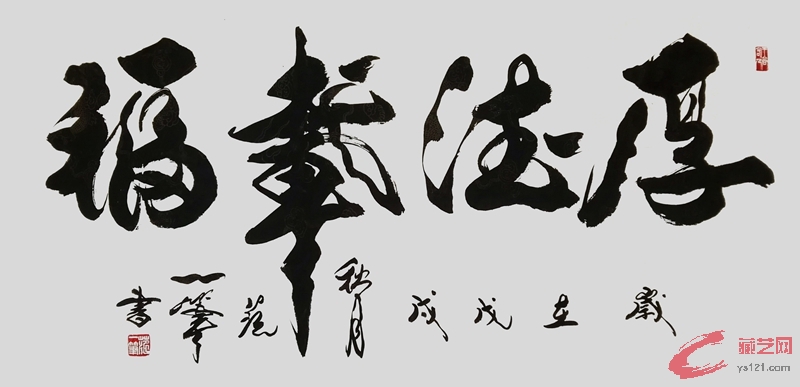 厚德載福
歲在戊戌秋月 一 書
藏艺网
ys121.com